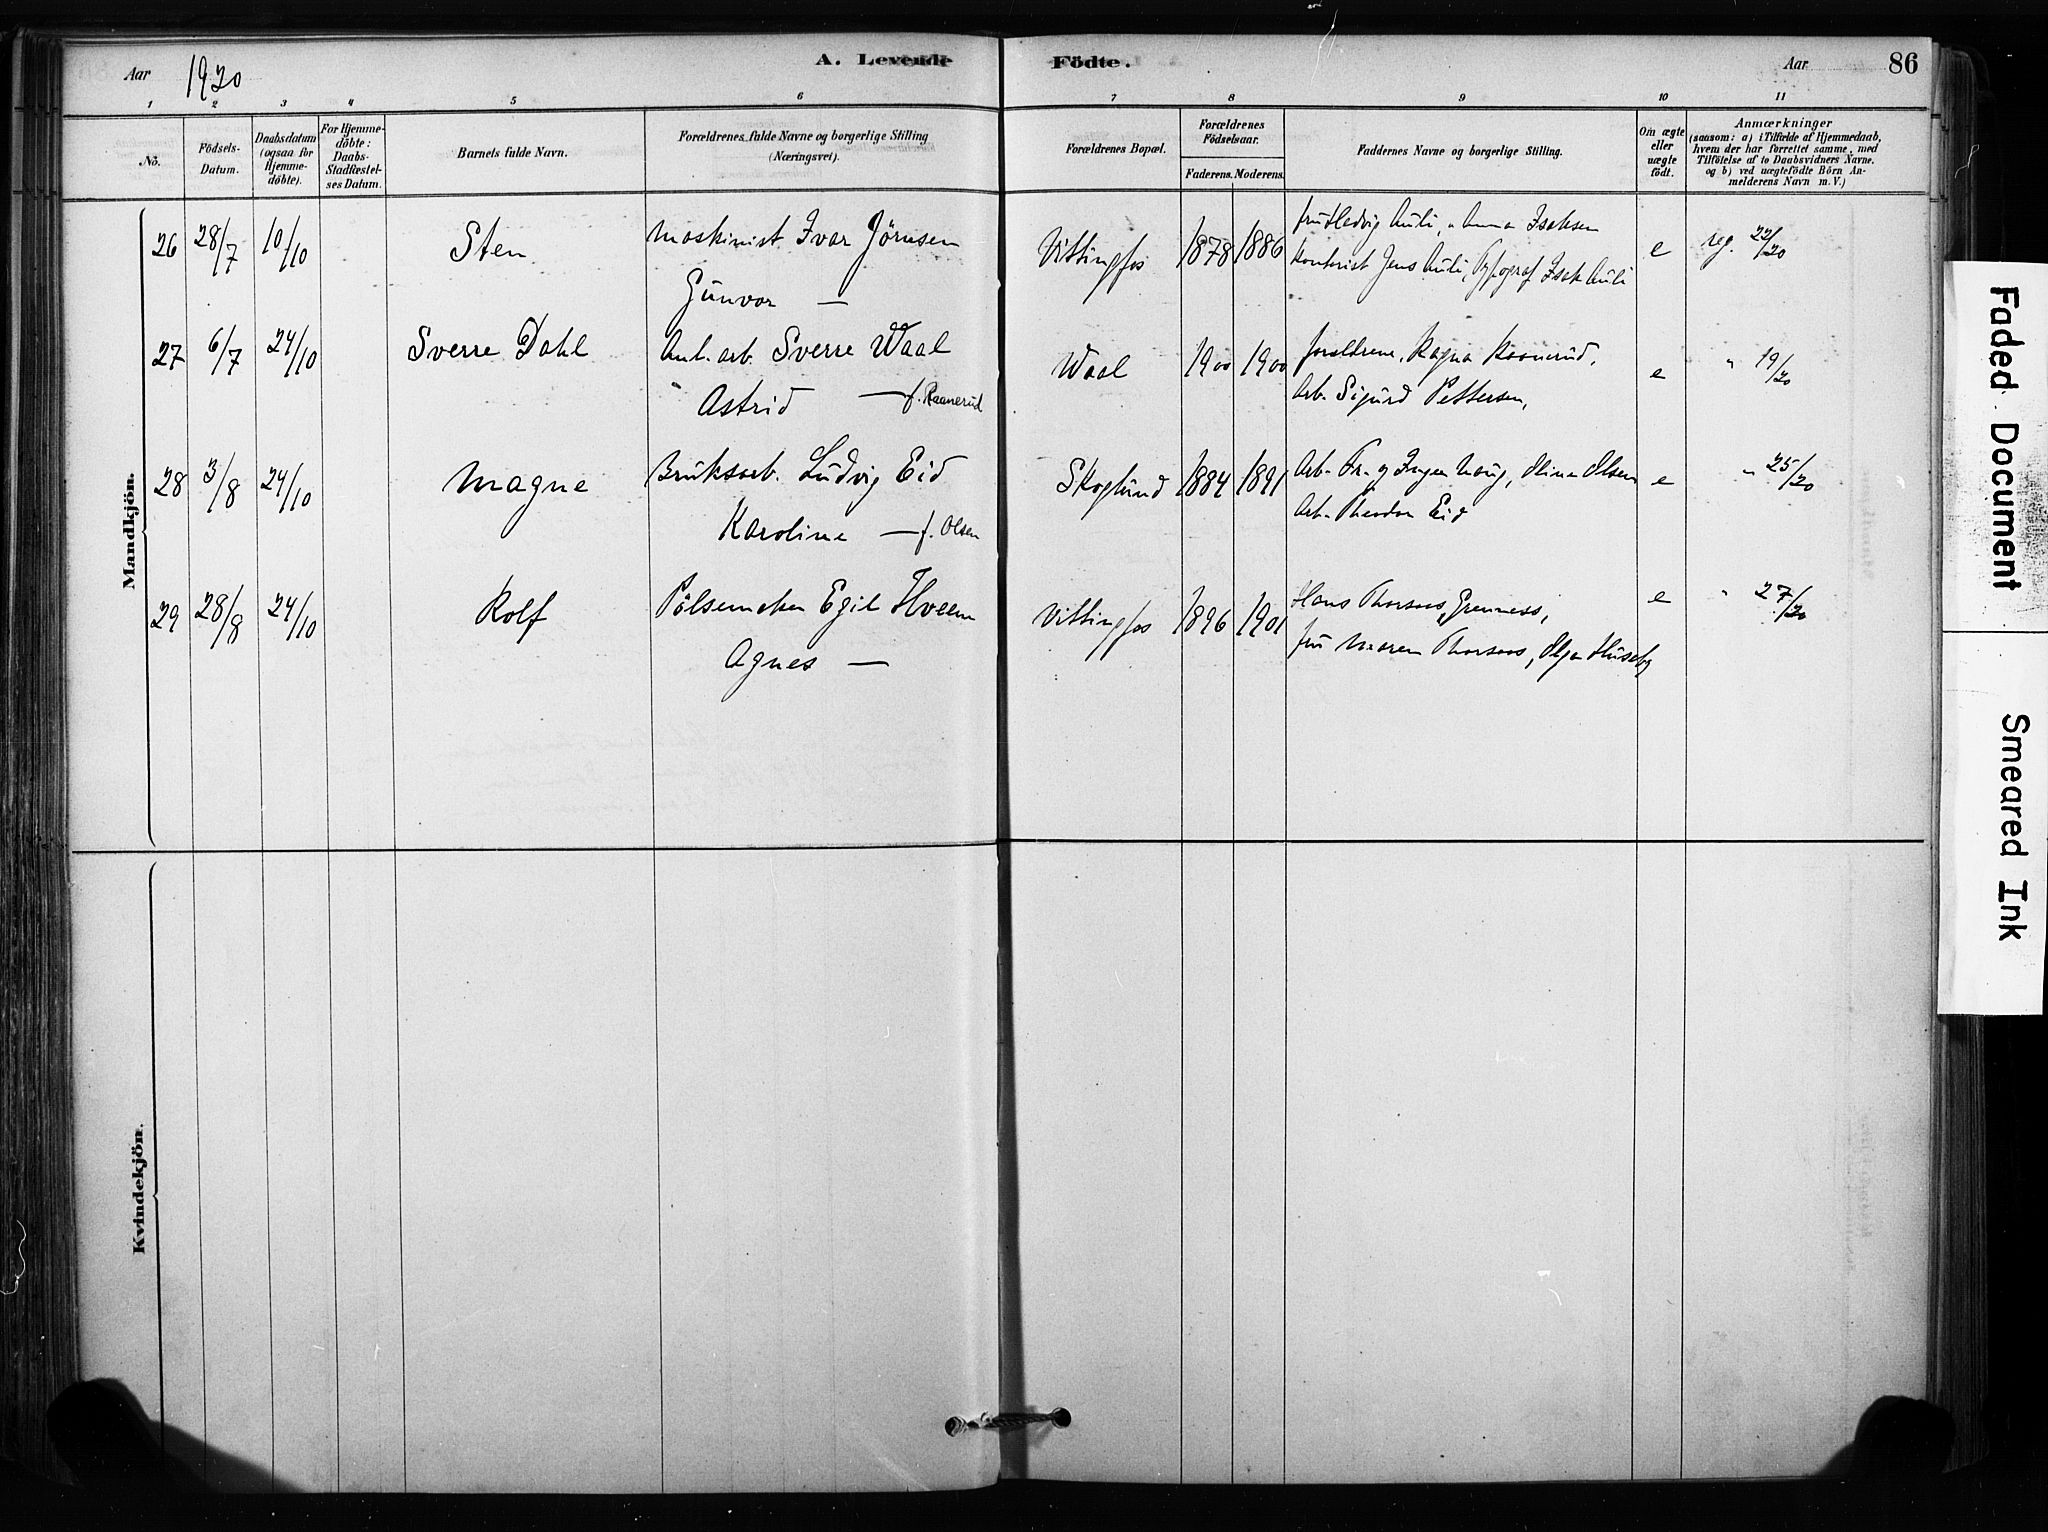 Aar 1920 A. Levende Födte. Aar 86
1 2 3 4 5 6 7 8 9 10 11
No.
Födsels-Datum.
Daabsdatum (ogsaa for Hjemme-döbte).
For Hjemme-döbte: Daabs-Stadfæstel-ses Datum.
Barnets fulde Navn.
Forældrenes fulde Navne og borgerlige Stilling (Næringsvei).
Forældrenes Bopæl.
Forældrenes Födselsaar.
Faderens. Moderens.
Faddernes Navne og borgerlige Stilling.
Om ægte eller uægte födt.
Anmærkninger
(saasom: a) i Tilfælde af Hjemmedaab, hvem der har forrettet samme, med Tilföielse af to Daabsvidners Navne. og b) ved uægtefödte Börn An-melderens Navn m. V.)
Mandkjön.
26 28/7 10/10 Sten Maskinist Ivar Jörnsen Vittingfos 1878 1886 fru Hedvig Auli, " Anna Isaksen e reg. 22/20
Gunvor — Kontorist Jens Auli, Typograf Isak Auli
27 6/7 24/10 Sverre Dahl Anl. arb. Sverre Waal Waal 1900 1900 forældrene, Ragna Raanerud, e " 19/20
Astrid — f. Raanerud Arb. Sigurd Pettersen,
28 3/8 24/10 Magne Bruksarb. Ludvig Eid Skoglund 1884 1891 Arb. Fr. og Inga Haug, Olsen e " 25/20
Karoline — f. Olsen Arb. Theodor Eid
29 28/8 24/10 Rolf Pölsemaker Egil Hveem Vittingfos 1896 1901 Hans Thorsaas, Grenness, e " 27/20
Agnes — fru Maren Thorsaas, Olga Huseby
Kvindekjön.
Faded Document
Smeared Ink